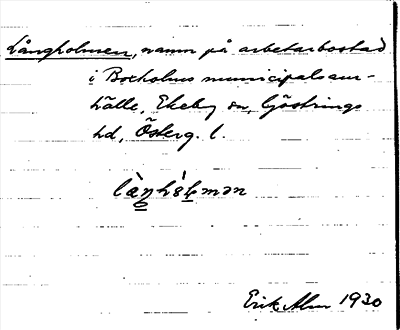 Långholmen, namn på arbetarbostad
i Boxholms municipalsam-
hälle, Ekeby sn, Göstrings
hd, Österg. l.
Erik Alm 1930